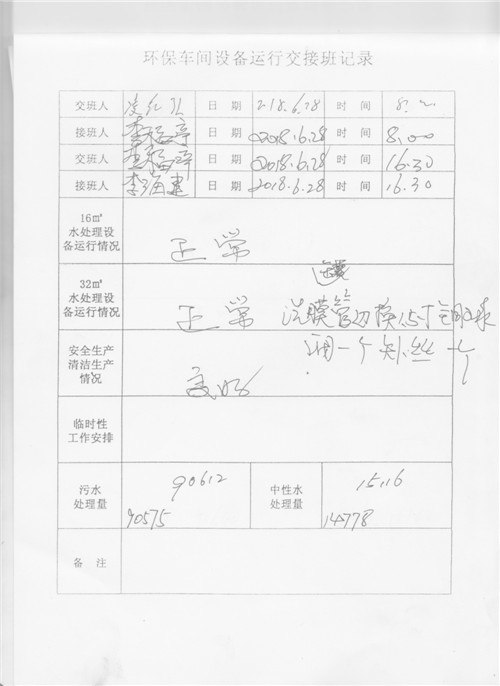 环保车间设备运行交接班记录
交班人 日期 2018.6.28 时间 8.
接班人 日期 2018.6.28 时间 8:00
交班人 日期 2018.6.28 时间 16.30
接班人 李海建 日期 2018.6.28 时间 16.30
16m³
水处理设
备运行情况
正常
32m³
水处理设
备运行情况
正常 洗膜管 换1.5寸
用一个 丝一个
安全生产
清洁生产
情况
良好
临时性
工作安排
污水
处理量
90612
90575
中性水
处理量
15116
14778
备注